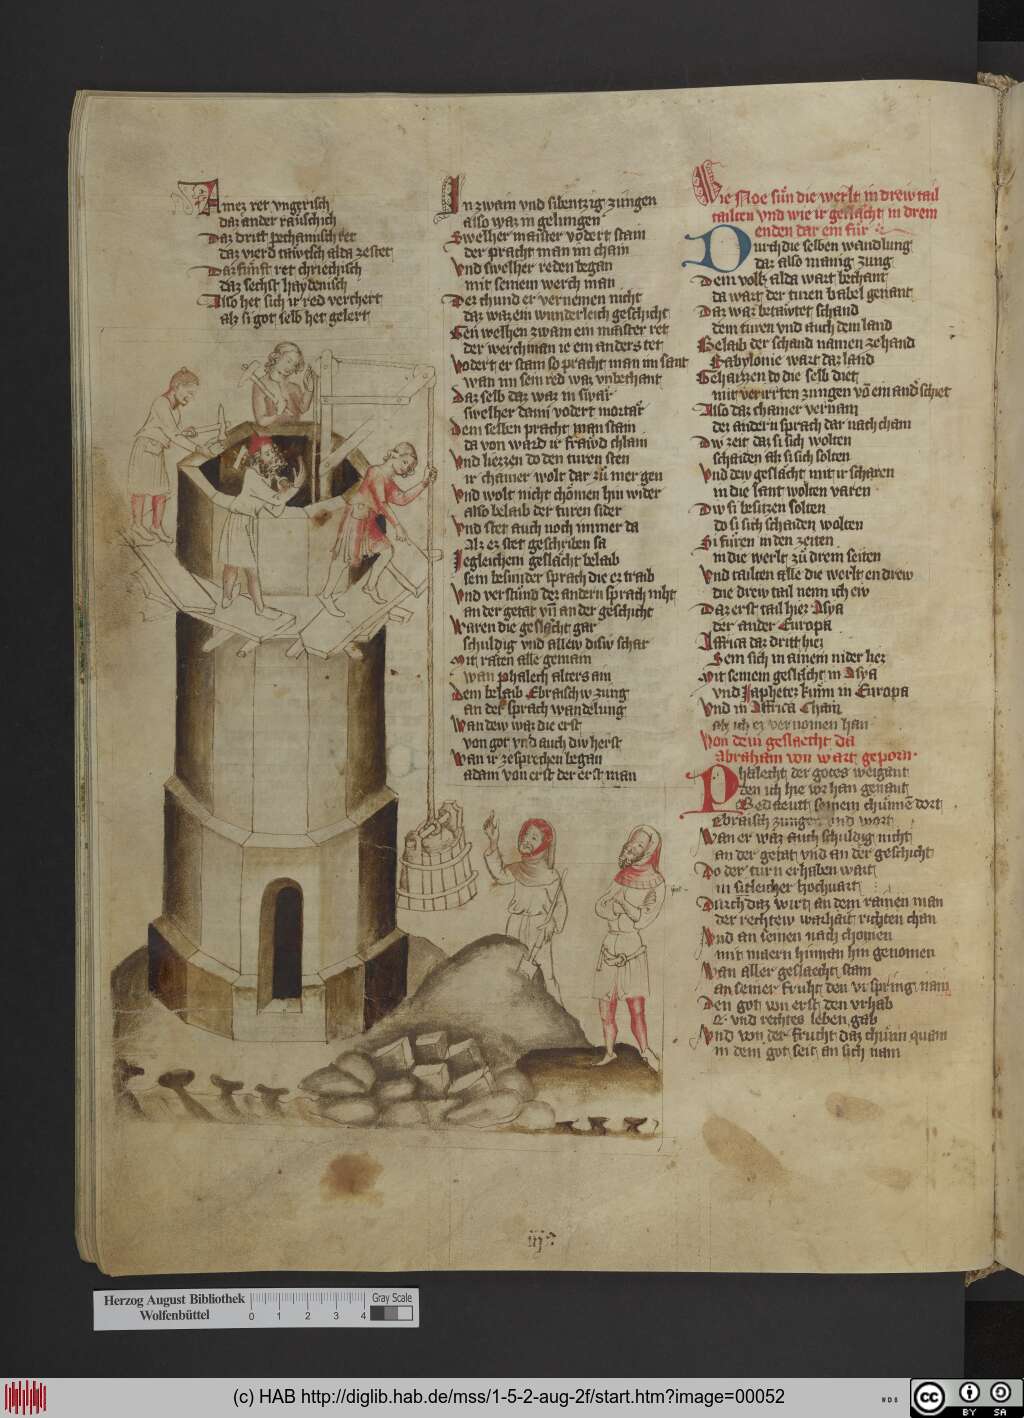 Ainez ret vngerisch
daz ander raüschich
Daz dritt pechamisch ret
daz vierd tawtsch alda zestet
Daz fünft ret chriechisch
daz sechst haydenisch
Also het sich ir red verchert
alz si got selb het gelert
In zwain vnd sibentzig züngen
also waz in gelungen
Swelher maister vodert stain
der pracht man im chain
Vnd swelher reden began
mit seinem werch man
Der chund er vernemen nicht
daz waz ein wunderleich geschicht
Gen welhen zwain ein maister ret
der werchman ie ein anders tet
Vodert er stain so pracht man im sant
wan im sein red waz vnbechant
Daz selb daz waz in swär
swelher dann vodert mortär
Dem selben pracht man stain
da von ward ir fräwd chlain
Vnd liezzen do den turen sten
ir chainer wolt dar zü mer gen
Vnd wolt nicht chömen hin wider
also belaib der turen sider
Vnd stet auch noch immer da
Alz ez stet geschriben sa
Iegleichem geslächt belaib
sein besunder sprach die ez traib
Vnd verstünd der andern sprach niht
an der getat vn̄ an der geschicht
Waren die geslächt gar
schuldig vnd allew disw schar
Mit räten alle gemain
wan phalech alters ain
Dem belaib Ebraisch w zung
an der sprach wandelung
Wan dew waz die erst
von got vnd auch diw herst
Wan ir zesprechen began
adam von erst der erst man
Wie Noe sün die werlt in drew tail
tailten vnd wie ir geslächt in drein
enden dar ein für
Durch die selben wandlung
daz also manig zung
Dem volk alda wart bechant
da wart der turen babel genant
Daz waz betäwtet schand
dem turen vnd auch dem land
Belaib der schand namen zehand
Babylonie wart daz land
Gehaizzen do die selb diet
mit verirrten zungen vō ein and̄ schiet
Also daz chainer vernam
der andern sprach dar nach cham
Dw zeit daz si sich wolten
schaiden alz si sich solten
Vnd dew geslächt mit ir scharen
in die lant wolten varen
Dw si besitzen solten
do si sich schaiden wolten
Si füren in den zeiten
in die werlt zü drein seiten
Vnd tailten alle die werlt en drew
die drew tail nenn ich ew
Daz erst tail hiez Asya
der ander Europa
Affrica daz dritt hiez
Sem sich in ainem nider liez
Mit seinem geslächt in Asya
vnd Iaphetez künn in Europa
Vnd in Affrica Cham
alz ich ez vernomen han
Von dem geslaecht da
abraham von wart geporn
Phalecht der gotes weigant
den ich hie vor han genant
Bedäeutt seinem chünnē dort
Ebraisch zungen vnd wort
Wan er waz auch schuldig nicht
an der getat vnd an der geschicht
Do der turn erhaben wart
in sitleicher hochvart
Durch daz wirt an dem rainen man
der rechtew warhait richten chan
Vnd an seinen nach chomen
mit maern hinnan hin genomen
Wan aller geslaecht stam
an seiner fruht den vrspring nam
Den got von erst den vrhab
E vnd rechtes leben gab
Vnd von der frucht daz chünn quam
in dem got seit an sich nam
iij
Herzog August Bibliothek
Wolfenbüttel
0 1 2 3 4
Gray Scale
(c) HAB http://diglib.hab.de/mss/1-5-2-aug-2f/start.htm?image=00052
cc BY SA